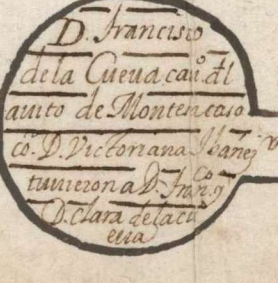 D. francisco
dela Cueva, cau.º dl
auito de Montesa caso
co. D. Victoriana Ibañez
tuuieron a D. Fran.co y
D. clara dela cu
eua